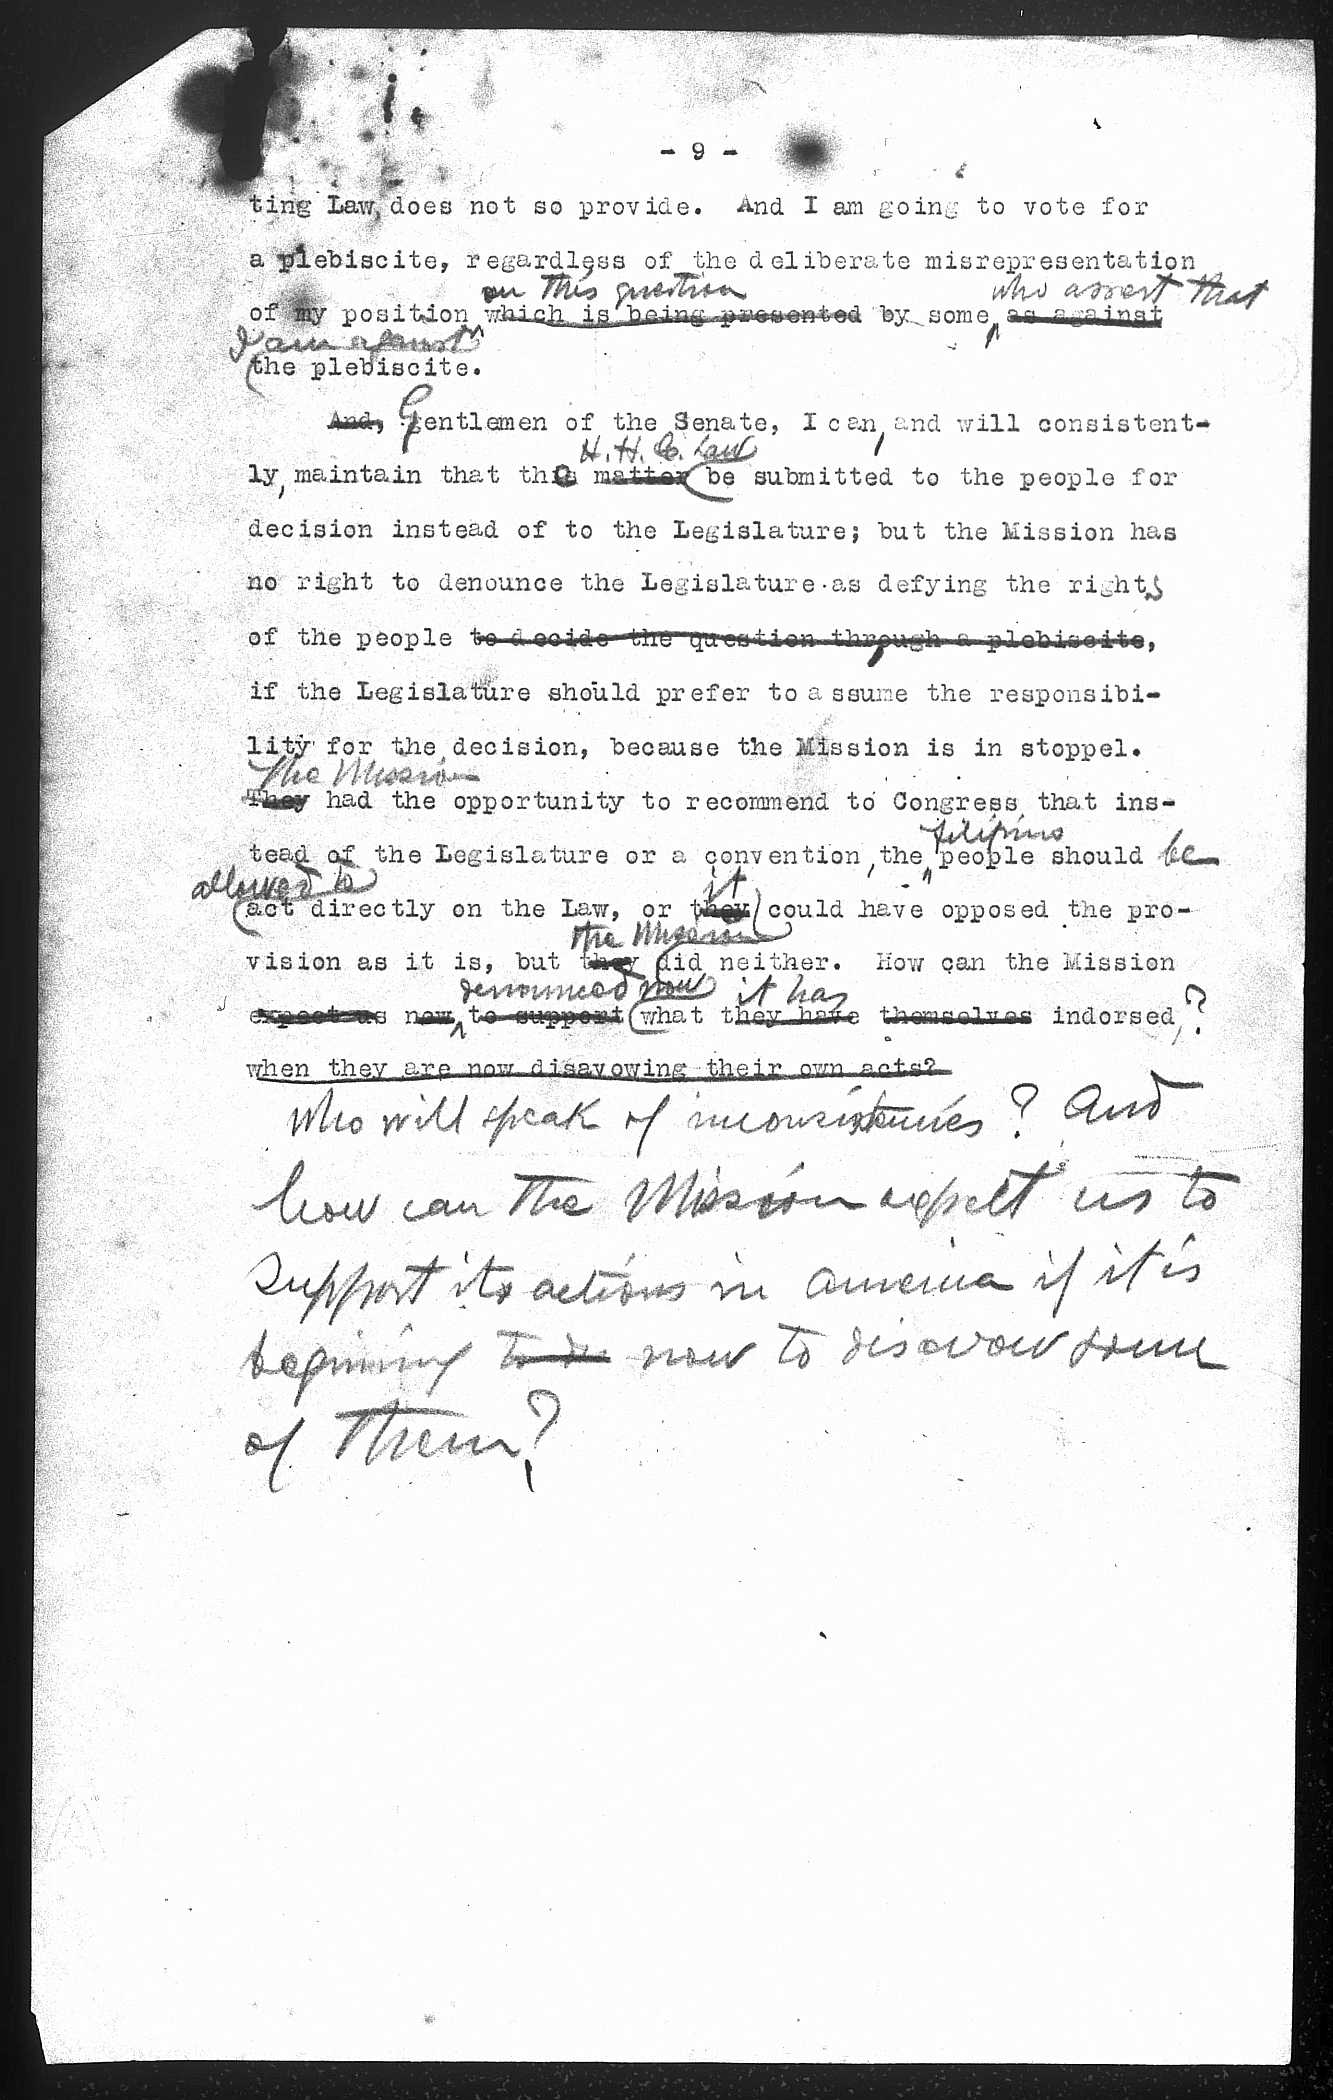 - 9 -
ting Law, does not so provide. And I am going to vote for
a plebiscite, regardless of the deliberate misrepresentation
on this question who assert that
of my position which is being presented by some as against
I am against
the plebiscite.
And, Gentlemen of the Senate, I can, and will consistent-
H. H. C. Law
ly, maintain that the matter be submitted to the people for
decision instead of to the Legislature; but the Mission has
no right to denounce the Legislature as defying the rights
of the people to decide the question through a plebiscite,
if the Legislature should prefer to assume the responsibi-
lity for the decision, because the Mission is in stoppel.
The Mission
They had the opportunity to recommend to Congress that ins-
filipino
tead of the Legislature or a convention, the people should be
allowed to it
act directly on the Law, or they could have opposed the pro-
the Mission
vision as it is, but they did neither. How can the Mission
denounced now it has
expect us now to support what they have themselves indorsed,?
when they are now disavowing their own acts?
Who will speak of inconsistencies? And
how can the Mission expect us to
support its actions in America if it is
begining to de now to disavow some
of them?